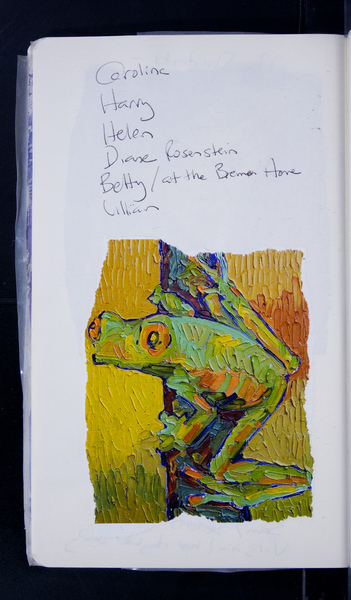 Caroline
Harry
Helen
Diane Rosenstein
Betty / at the Bremen Home
Lillian